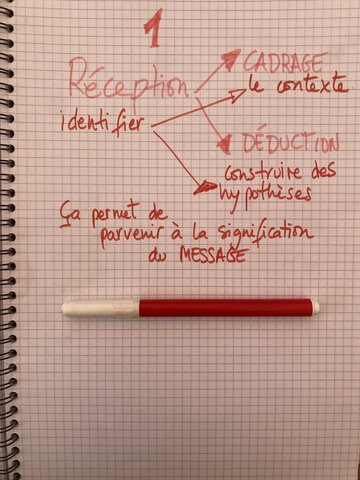 1
Réception
CADRAGE
le contexte
identifier
DÉDUCTION
construire des
hypothèses
Ça permet de
parvenir à la signification
du MESSAGE